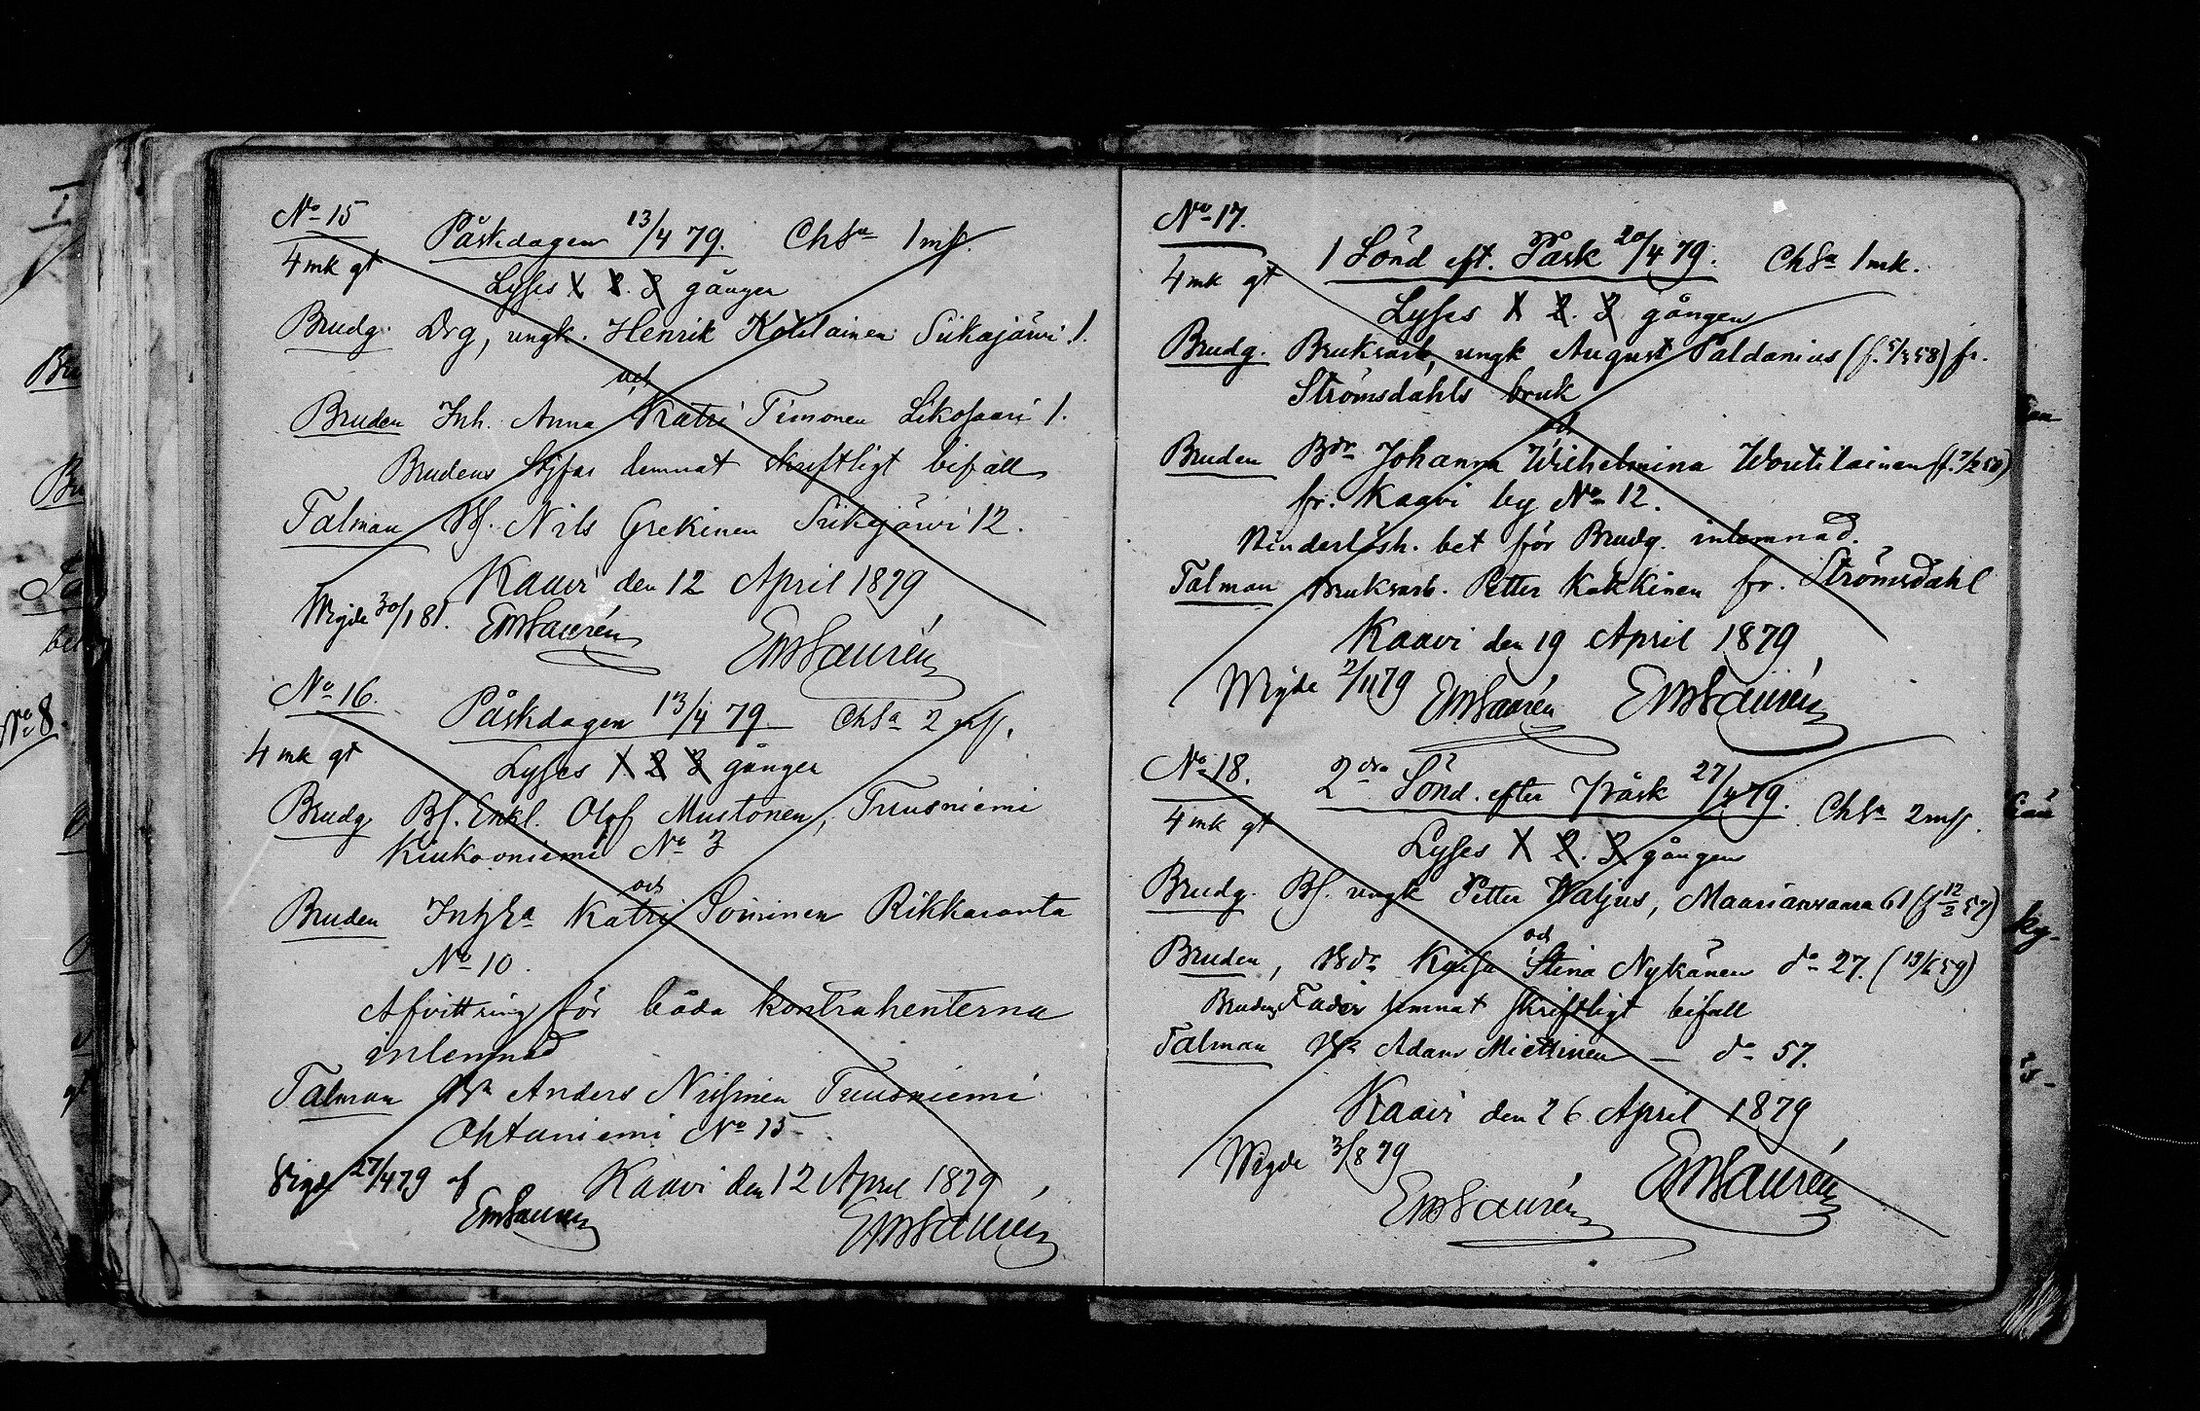 No 15
Påskdagen 13/4 79. Chsa 1 mk.
4 mk gt
Lyses 1 2. 3 gånger
Brudg. Drg, ungk. Henrik Kotilainen Siikajärvi 1.
och
Bruden Inh. Anna Katri Timonen Likosaari 1.
Brudens Styffar lemnat skriftligt bifall
Talman Bf. Nils Grekinen Siikajärvi 12.
Kaavi den 12 April 1879
Wigde 30/1 81. EmSaurén EmSaurén
No 16.
Påskdagen 13/4 79 Chsa 2 mk.
4 mk gt
Lyses 1. 2 3 gånger
Brudg Bf. Enkl. Olof Mustonen, Tuusniemi
Kiukooniemi No 3
och
Bruden Inhska Katri Soininen Rikkaranta
No 10.
Afvittring för båda kontrahenterna
inlemnad
Talman Bn Anders Nissinen Tuusniemi
Ohtaniemi No 15
Vigde 27/4 79 af Kaavi den 12 April 1879
EmSaurén EmSaurén
No 17.
1 Sönd eft. Påsk 20/4 79. Chsa 1 mk.
4 mk gt
Lyses 1 2. 3 gången
Brudg. Bruksarb, ungk August Paldanius (f. 5/3 58) fr.
Strömsdahls bruk
och
Bruden Bdr Johanna Wilhelmina Woutilainen
fr. Kaavi by No 12.
Hinderlösh. bet för Brudg. inlemnad.
Talman Bruksarb. Petter Kokkinen fr. Strömsdahl
Kaavi den 19 April 1879
Wigde 2/11 79 EmSaurén EmSaurén
No 18.
2dra Sönd. efter Påsk 27/4 79. Chsa 2 mk.
4 mk gt
Lyses 1 2. 3 gången
Brudg. Bf. ungk Petter Waljus, Maarianvaara 61 (f 12/2 57)
och
Bruden, Bdr Kajsa Stina Nykänen do 27. (19/6 59)
Brudens Fader lemnat skriftligt bifall
Talman Bn Adam Miettinen — do 57.
Kaavi den 26 April 1879
Wigde 3/8 79
EmSaurén EmSaurén
No 8